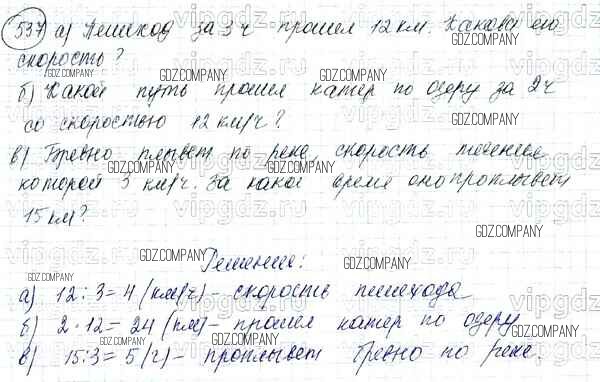 537 а) Пешеход за 3ч прошел 12 км. Какова его
скорость?
GDZ.COMPANY GDZ.COMPANY GDZ.COMPANY
б) Какой путь прошел катер по озеру за 2ч
со скоростью 12 км/ч?
GDZ.COMPANY
в) Бревно плывет по реке, скорость течения
GDZ.COMPANY GDZ.COMPANY GDZ.COMPANY
которой 3 км/ч. За какое время оно проплывет
15 км?
vipgdz.ru
GDZ.COMPANY
Решение:
GDZ.COMPANY GDZ.COMPANY
а) 12:3=4 (км/ч) - скорость пешехода
б) 2·12=24 (км) - прошел катер по озеру
GDZ.COMPANY GDZ.COMPANY
в) 15:3=5 (ч) - проплывет бревно по реке.